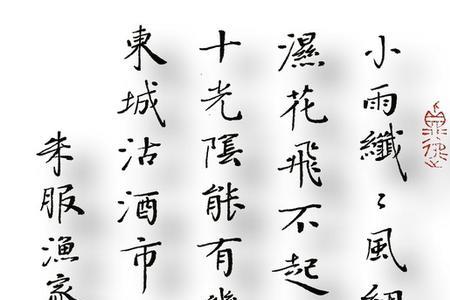 小雨纖々風細
濕花飛不起
十光陰能有幾
東城沽酒市
朱服漁家